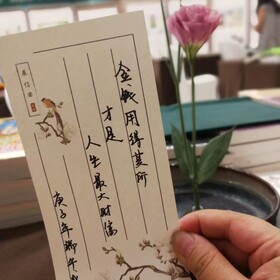 金钱用得其所
才是
人生最大财富
庚子年端午